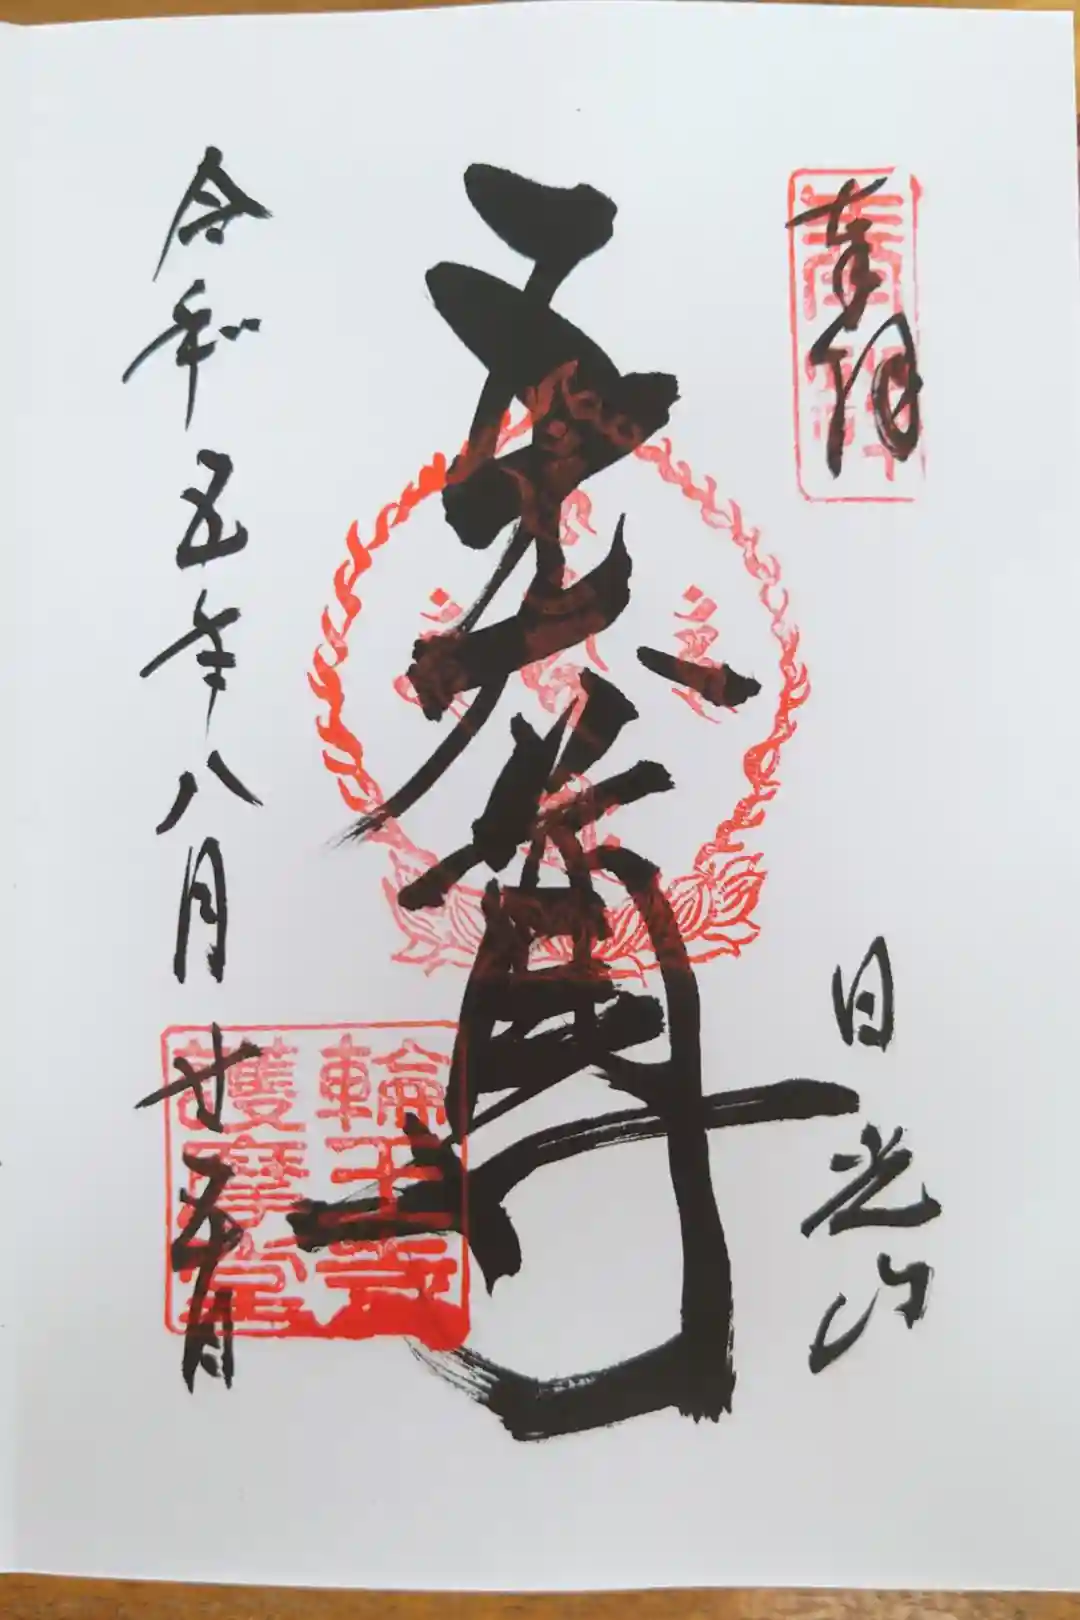 奉拝
奉拝
日光山
五大尊
輪王寺
護摩堂
令和五年八月廿五日